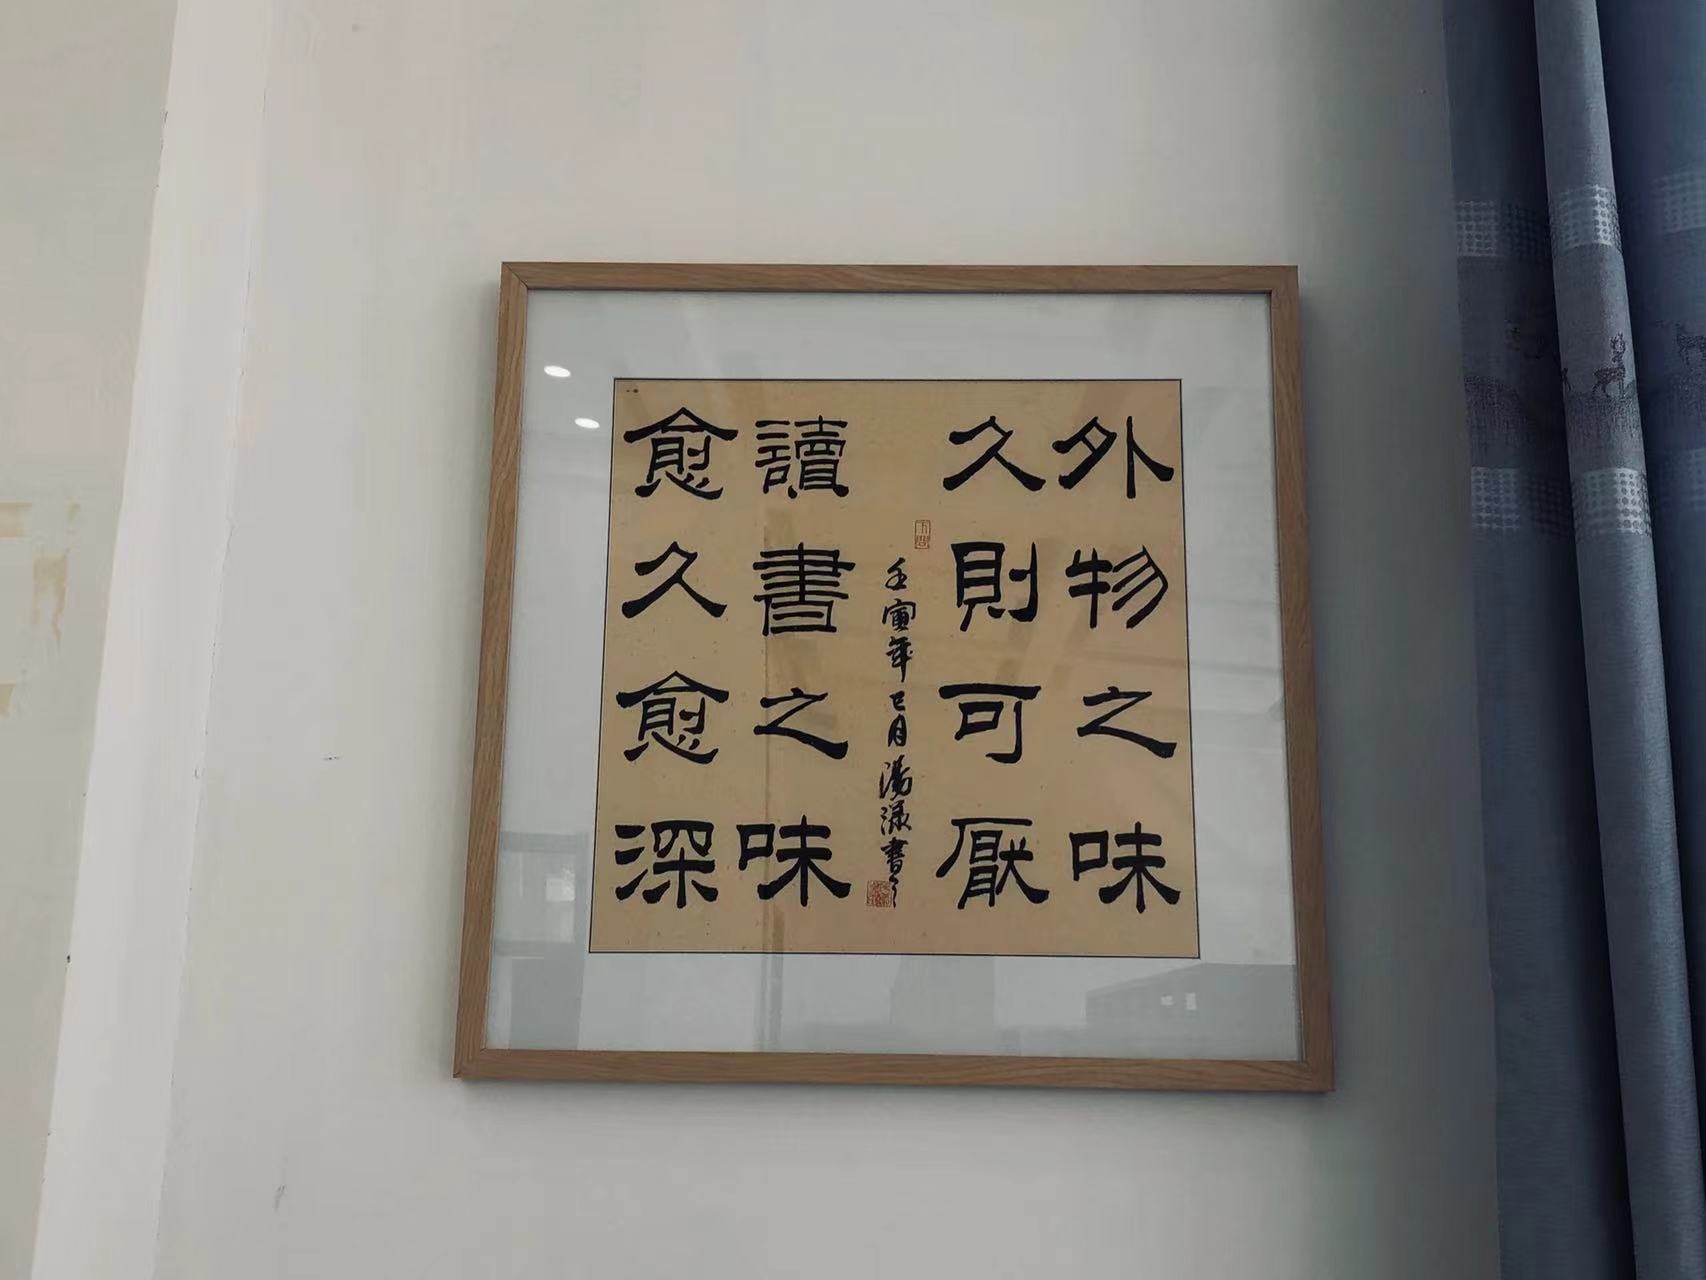 外物之味
久則可厭
壬寅年巳月湯淥書
讀書之味
愈久愈深